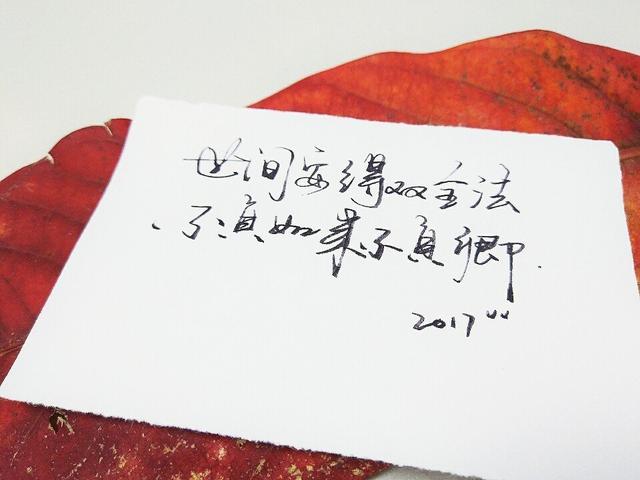 世间安得双全法
不负如来不负卿.
2017